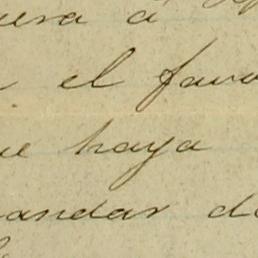 uera á
el favo
ue haya
andar de